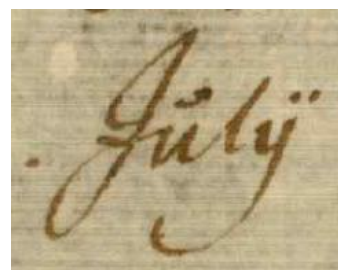 . Julÿ